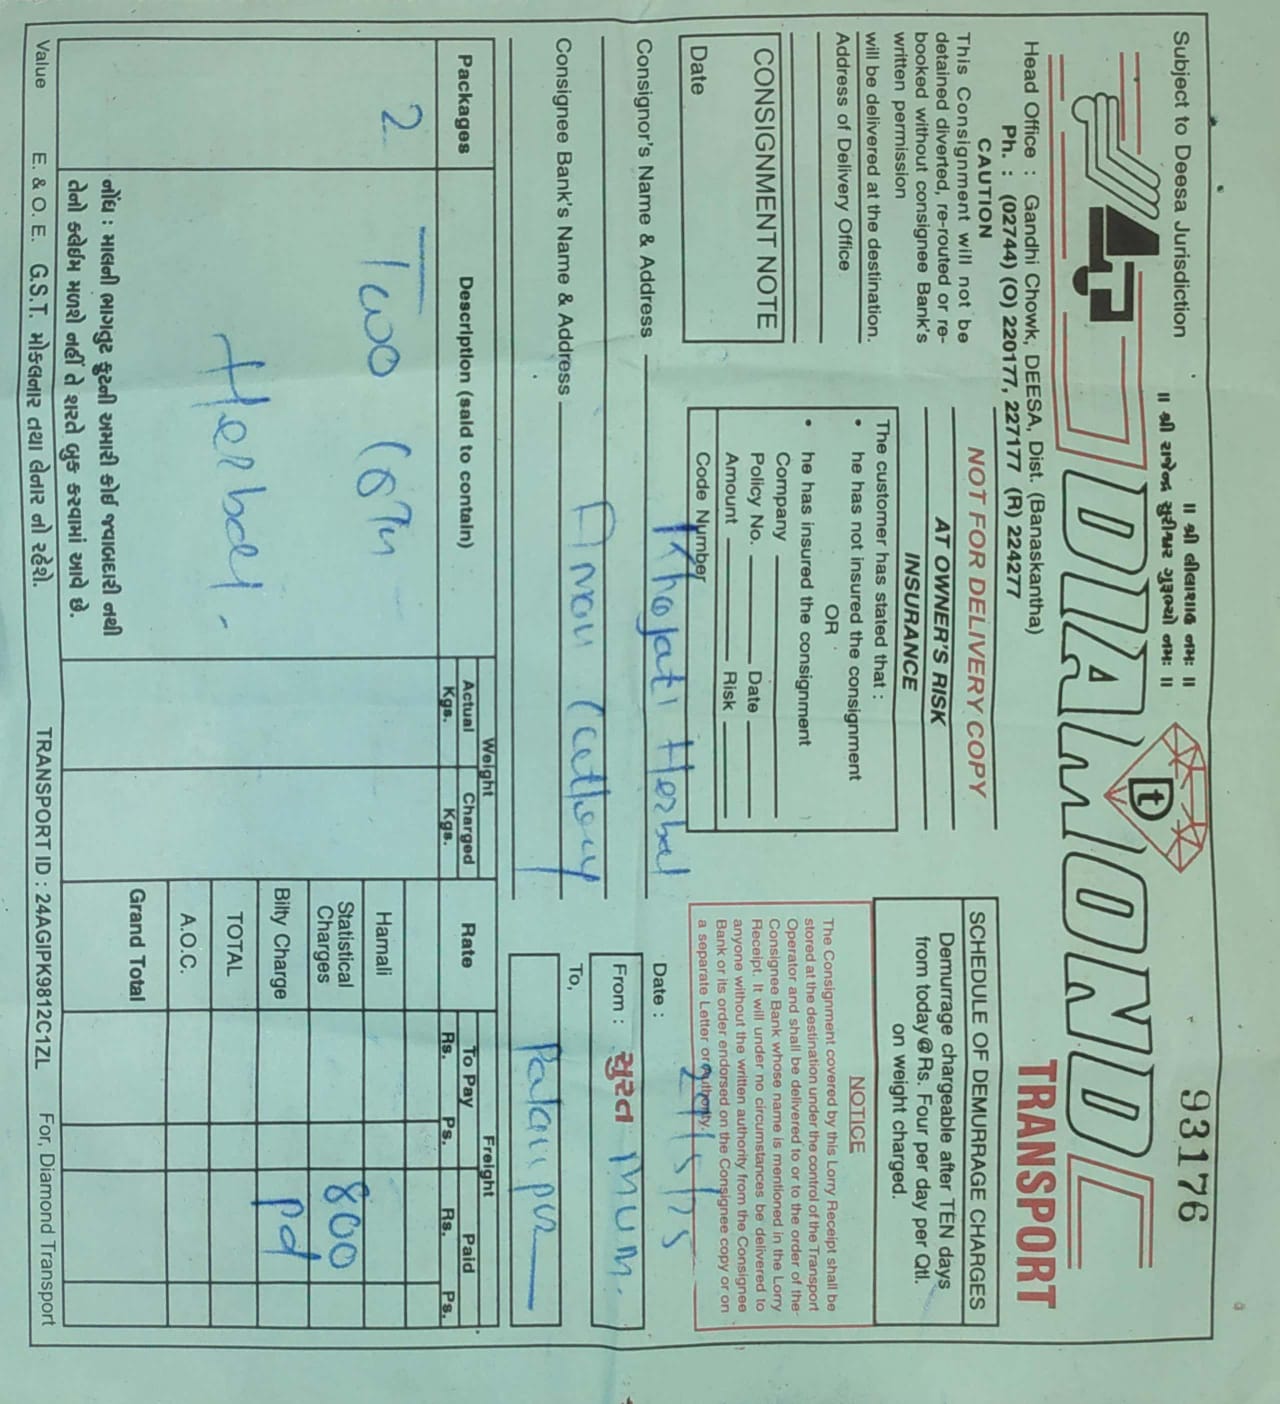 Subject to Deesa Jurisdiction
॥ શ્રી લીલાશાહ નમઃ ॥
॥ શ્રી રાજેન્દ્ર સુરીશ્વર ગુરૂભ્યો નમઃ ॥
93176
DIAMOND
t
TRANSPORT
Head Office : Gandhi Chowk, DEESA, Dist. (Banaskantha)
Ph. : (02744) (O) 220177, 227177 (R) 224277
CAUTION
This Consignment will not be
detained diverted, re-routed or re-
booked without consignee Bank's
written permission
will be delivered at the destination.
Address of Delivery Office
CONSIGNMENT NOTE
Date
NOT FOR DELIVERY COPY
AT OWNER'S RISK
INSURANCE
The customer has stated that :
• he has not insured the consignment
OR
• he has insured the consignment
Company
Policy No. Date
Amount Risk
Code Number
SCHEDULE OF DEMURRAGE CHARGES
Demurrage chargeable after TEN days
from today@Rs. Four per day per Qtl.
on weight charged.
NOTICE
The Consignment covered by this Lorry Receipt shall be
stored at the destination under the control of the Transport
Operator and shall be delivered to or to the order of the-
Consignee Bank whose name is mentioned in the Lorry
Receipt. It will under no circumstances be delivered to
anyone without the written authority from the Consignee
Bank or its order endorsed on the Consignee copy or on
a separate Letter or authority.
Consignor's Name & Address Khojati Herbal
Date :
Consignee Bank's Name & Address
From : સુરત Mum.
To,
Palanpur
Packages
Description (said to contain)
Weight
Actual Kgs.
Charged Kgs.
Rate
Freight
To Pay
Rs. Ps.
Paid
Rs. Ps.
2
Two
Herbal.
Hamali
Statistical Charges 800
Bilty Charge pd
TOTAL
A.O.C.
Grand Total
નોંધ : માલની ભાગતુટ ફુટની અમારી કોઇ જવાબદારી નથી
તેનો કલેઇમ મળશે નહીં તે શરતે બુક કરવામાં આવે છે.
Value E. & O. E. G.S.T. મોકલનાર તથા લેનાર ની રહેશે. TRANSPORT ID : 24AGIPK9812C1ZL For, Diamond Transport